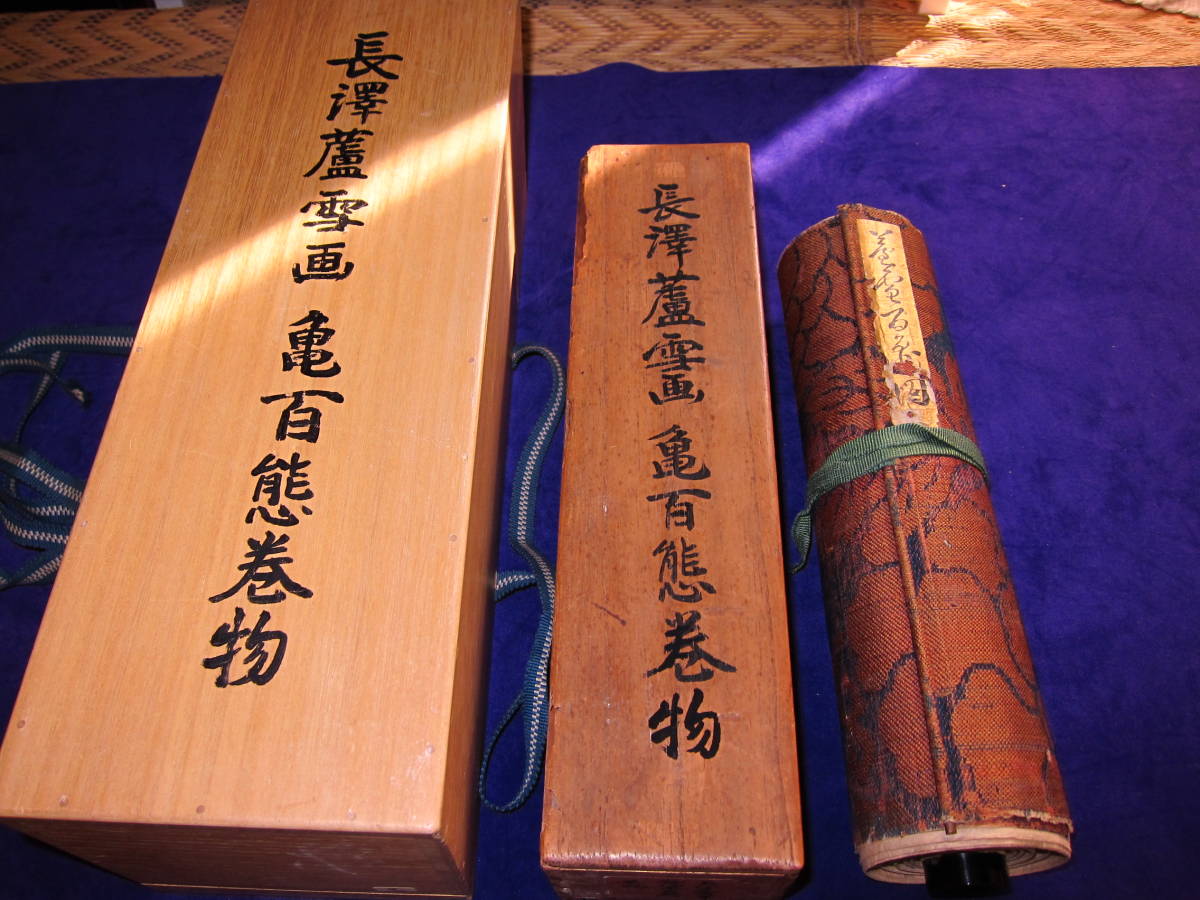 長澤蘆雪画 亀百態巻物
長澤蘆雪画 亀百態巻物